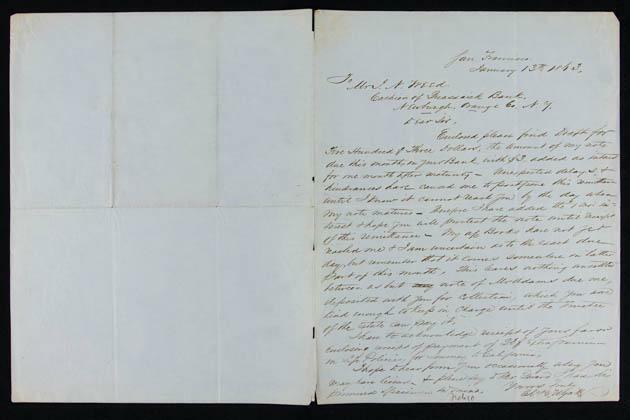 San Francisco
January 13th 1863,
To Mr J. N. Weed
Cashier of Bank
Newburgh, Orange Co. N. Y.
Dear Sir.
Enclosed please find Draft for
Five Hundred & Three Dollars, the amount of my note
due this month in your Bank, with $3 added as interest
for one month after maturity - Unexpected delays &
hindrances have caused me to postpone this remittance
until I know it cannot reach you by the day when
my note matures - I have added the
& hope you will protect the note until receipt
of this remittance - My Books have not yet
reached me & I am uncertain as to the exact due
day, but remember that it comes somewhere in latter
part of this month. This leaves nothing unsettled
between us but note of due me,
deposited with you for Collection, which you are
kind enough to keep in charge until the
of the Estate can pay it.
I have to acknowledge receipt of your favor
enclosing receipt of payment of
on Life Policies for Journey to California.
I hope to hear from you occasionally when you
may have leisure - & please say to Mr Ward I have the
promised specimen in
Yours truly